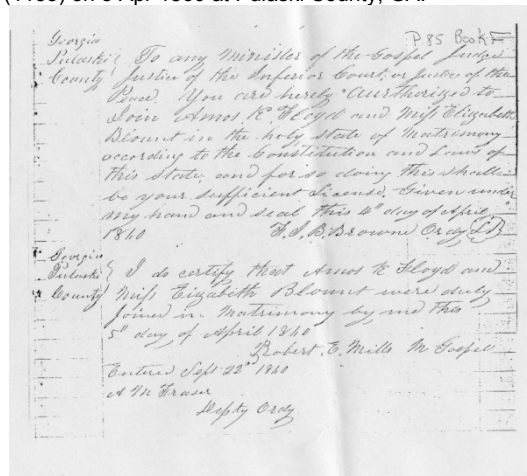 P 85 Book F
Georgia
Pulaski To any Minister of the Gospel Judge
County Justice of the Inferior Court, or Justice of the
Peace. You are hereby Aurthorized to
Join Amos K. Floyd and Miss Elizabeth
Blount in the holy state of Matrimony
according to the Constitution and Laws of
this State, and for so doing this shall
be your sufficient License. Given under
my hand and seal this 4" day of April
1860 Browne Ordy
Georgia
Pulaski I do certify that Amos K Floyd and
County Miss Eizabeth Blount were duly
Joined in Matrimony by me this
5" day of April 1860
Robert E. Mills M Gospel
Entered Sept 22d 1860
Fraser
Depty Ordy